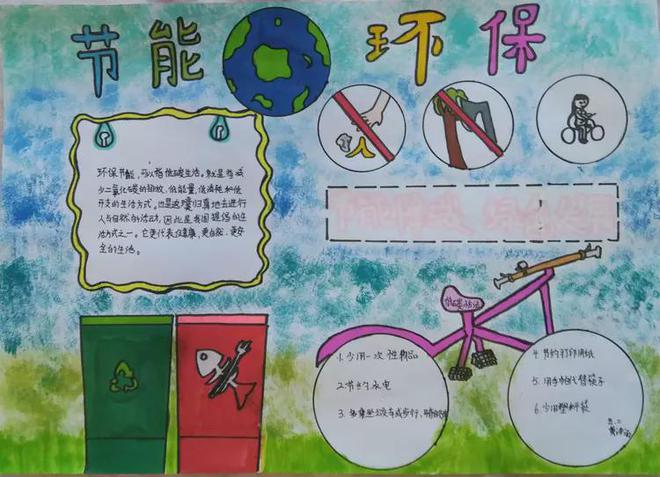 节能 环保
环保节能，可以指低碳生活。就是指减
少二氧化碳的排放，低能量、低消耗和低
开支的生活方式。也是返璞归真地去进行
人与自然的活动，因此是我国提倡的生
活方式之一。它更代表住健康、更自然、更安
全的生活。
低碳生活
1. 少用一次性物品
2. 节约水电
3. 乘坐公交车或步行
4. 节约打印用纸
5. 用手帕代替
6. 少用塑料袋